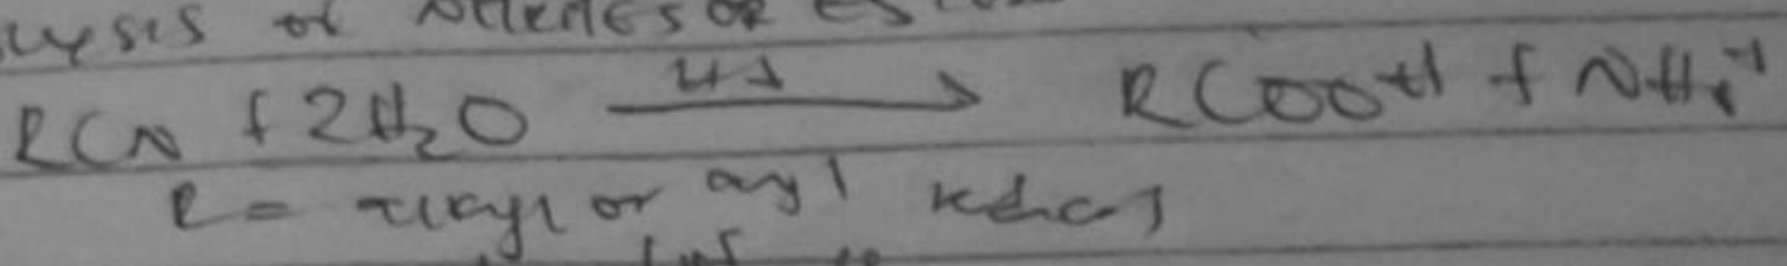 lysis of Nitriles or es
RCN + 2H₂O H⁺ → RCOOH + NH₄⁺
R = alkyl or aryl